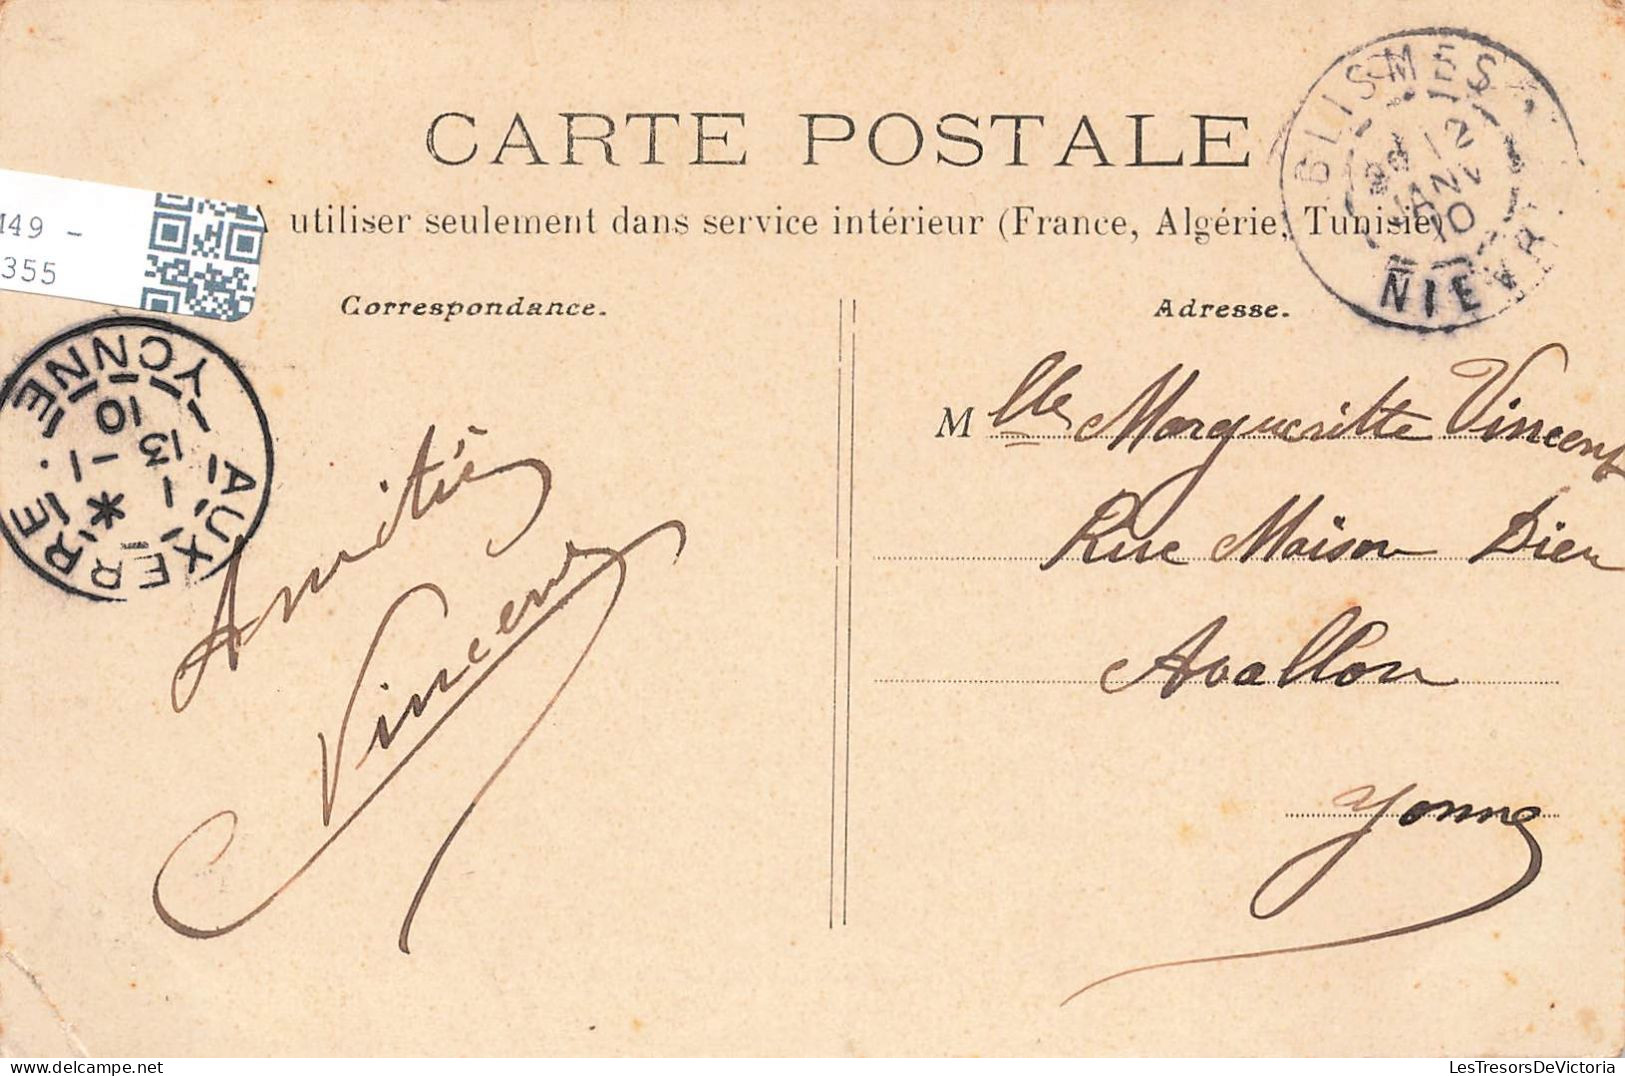 CARTE POSTALE
A utiliser seulement dans service intérieur (France, Algérie, Tunisie)
BLISMES
12
JANV
10
NIEVRE
M49 -
355
Correspondance.
Adresse.
YONNE
AUXERRE
13 - 1
10
Amitié
Vincent
Mlle Margueritte Vincent
Rue Maison Dieu
Avallon
Yonne
LesTresorsDeVictoria